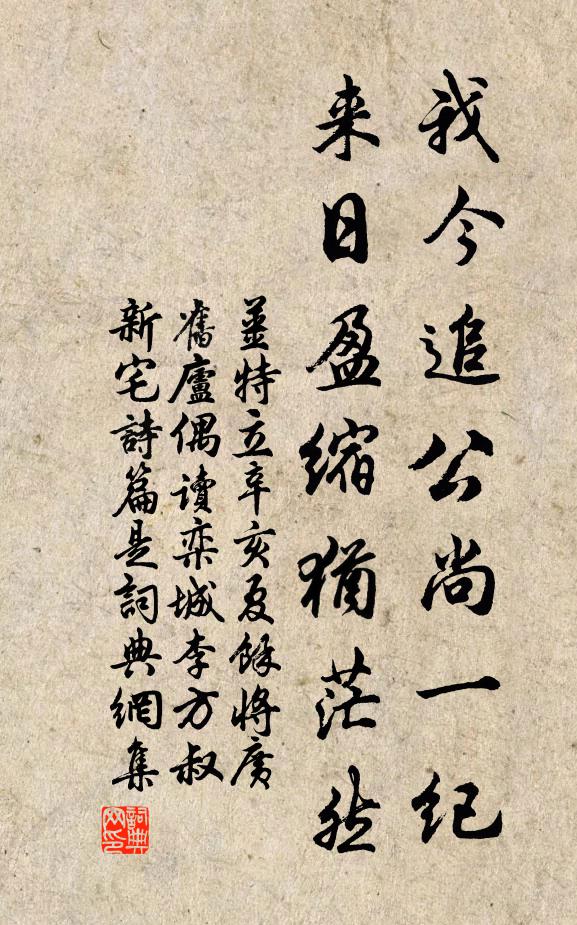 我今追公尚一纪
来日盈缩犹茫然
姜特立辛亥夏馀将广
旧庐偶读栾城李方叔
新宅诗篇是词典网集
詞典網印